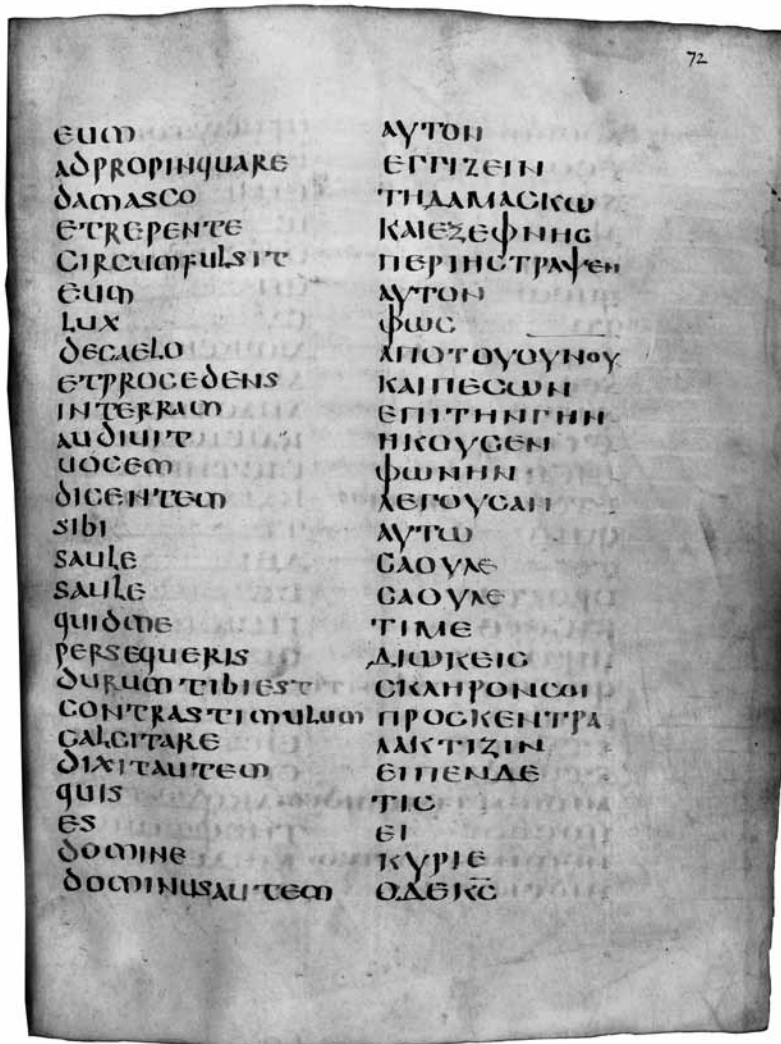 72
EUM
ADPROPINQUARE
DAMASCO
ETREPENTE
CIRCUMFULSIT
EUM
LUX
DECAELO
ETPROCEDENS
INTERRAM
AUDIUIT
UOCEM
DICENTEM
SIBI
SAULE
SAULE
QUIDME
PERSEQUERIS
DURUMTIBIEST
CONTRASTIMULUM
CALCITARE
DIXITAUTEM
QUIS
ES
DOMINE
DOMINUSAUTEM
ΑΥΤΟΝ
ΕΓΓΙΖΕΙΝ
ΤΗΔΑΜΑΣΚΩ
ΚΑΙΕΞΕΦΝΗΣ
ΠΕΡΙΗΣΤΡΑΨΕΝ
ΑΥΤΟΝ
ΦΩΣ
ΑΠΟΤΟΥΟΥΝΟΥ
ΚΑΙΠΕΣΩΝ
ΕΠΙΤΗΝΓΗΝ
ΗΚΟΥΣΕΝ
ΦΩΝΗΝ
ΛΕΓΟΥΣΑΝ
ΑΥΤΩ
ΣΑΟΥΛΕ
ΣΑΟΥΛΕ
ΤΙΜΕ
ΔΙΩΚΕΙΣ
ΣΚΛΗΡΟΝΣΟΙ
ΠΡΟΣΚΕΝΤΡΑ
ΛΑΚΤΙΖΙΝ
ΕΙΠΕΝΔΕ
ΤΙΣ
ΕΙ
ΚΥΡΙΕ
ΟΔΕΚ̅Σ̅